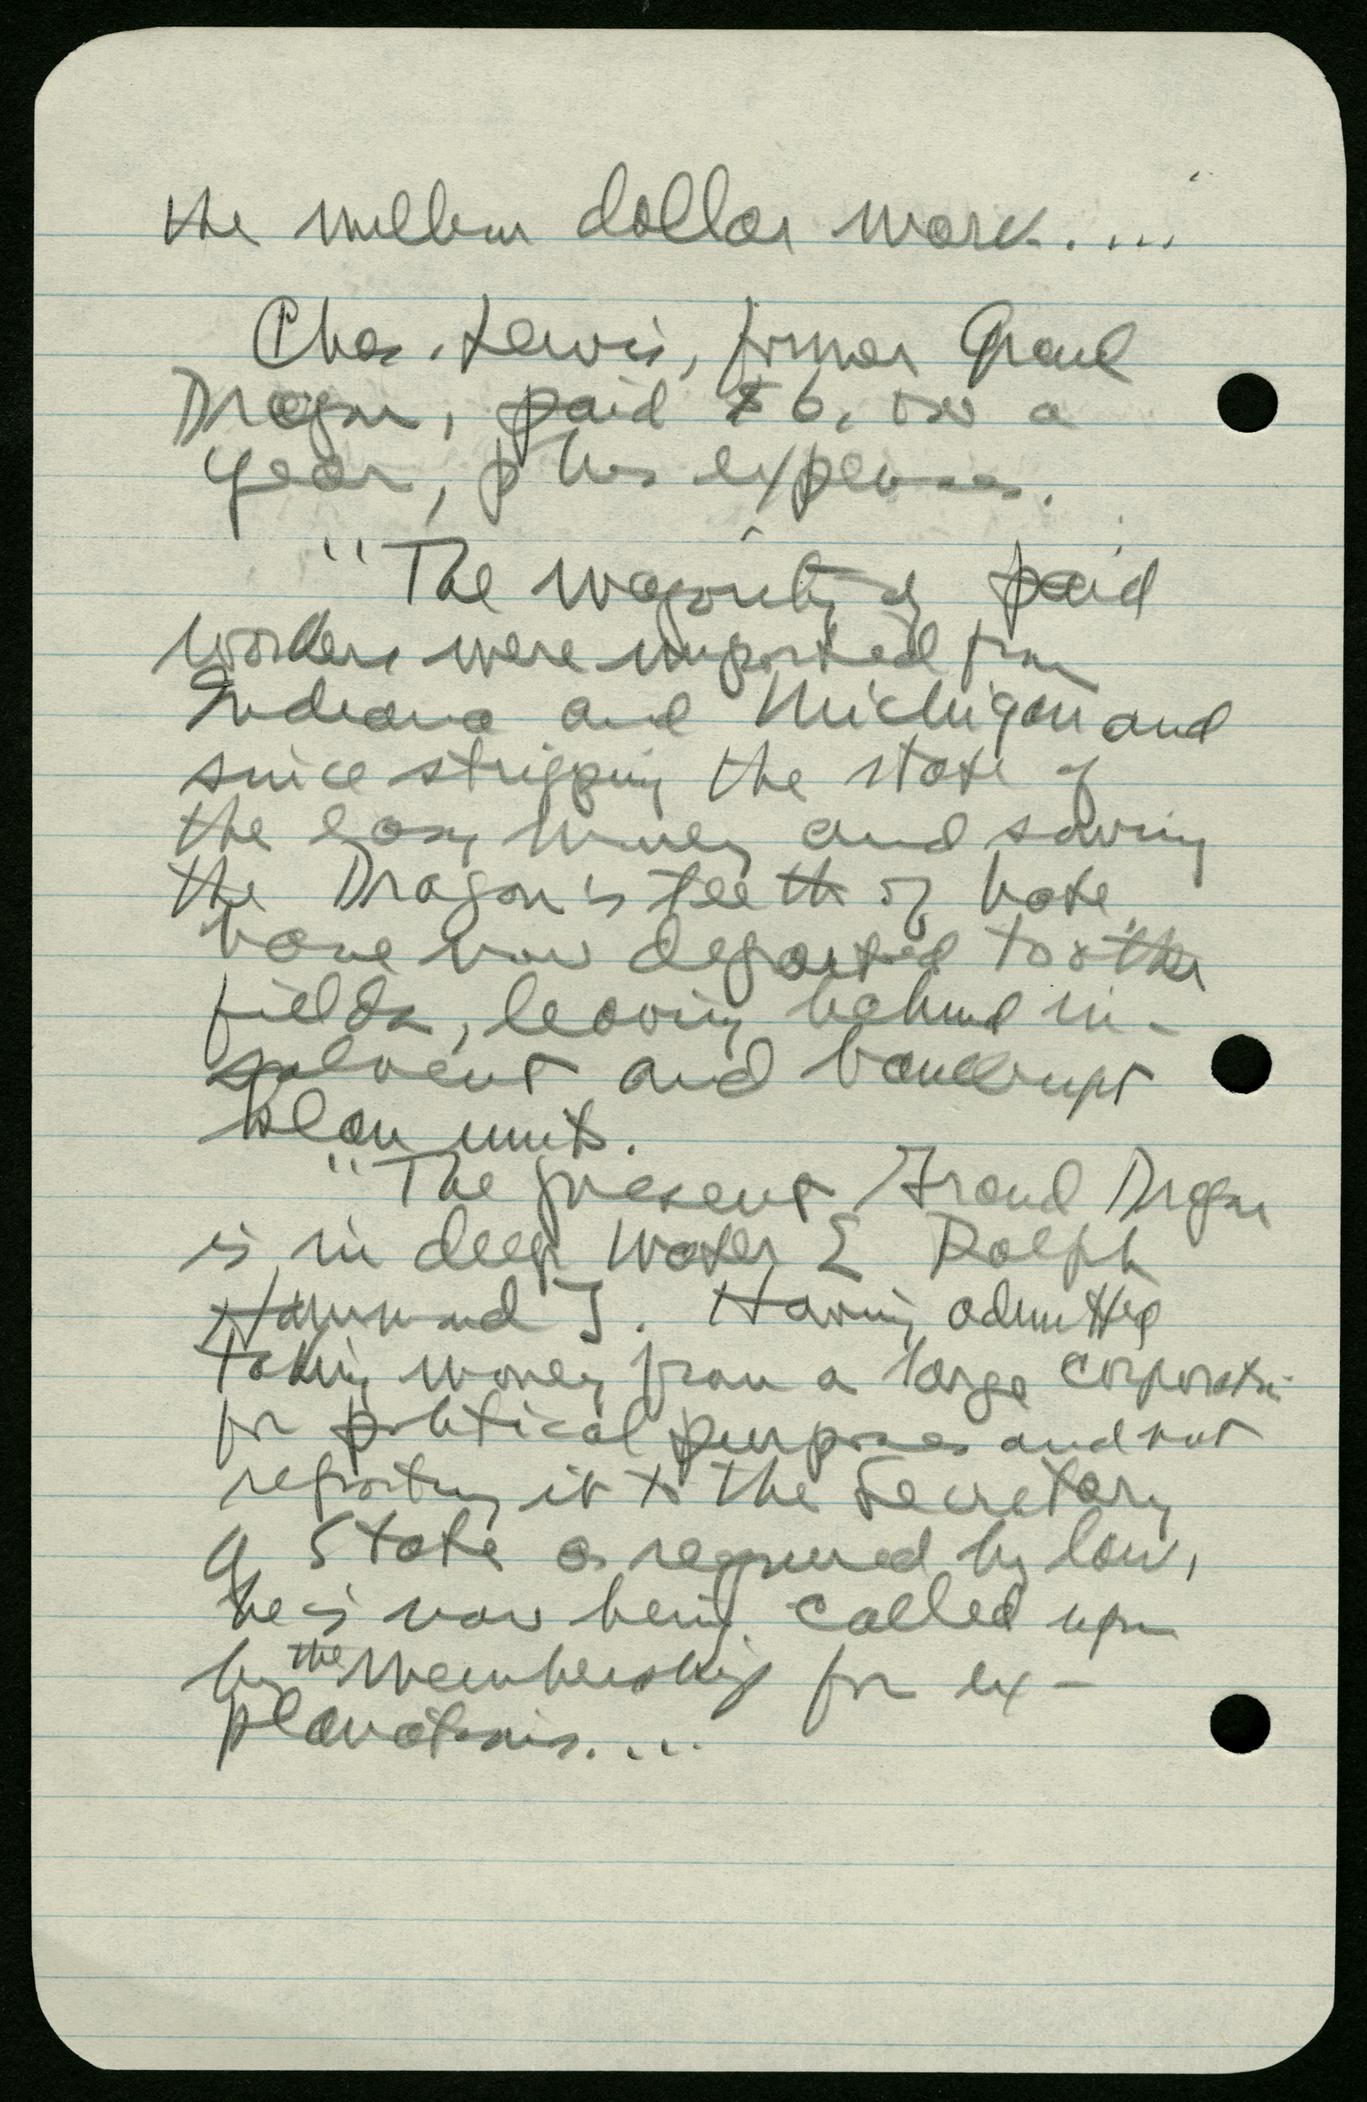 the million dollar mark....
Chas. Lewis, former Grand
Dragon, paid $6,000 a
year, plus expenses.
"The majority of paid
workers were imported from
Indiana and Michigan and
since stripping the state of
the easy money and sowing
the Dragon's teeth of hate
have now departed to other
fields, leaving behind in-
solvent and bankrupt
klan units.
"The present Grand Dragon
is in deep water [Rolph
Hammond]. Having admitted
taking money from a large corporation
for political purposes and not
reporting it to the Secretary
of State as required by law,
he is now being called upon
by the membership for ex-
planations....